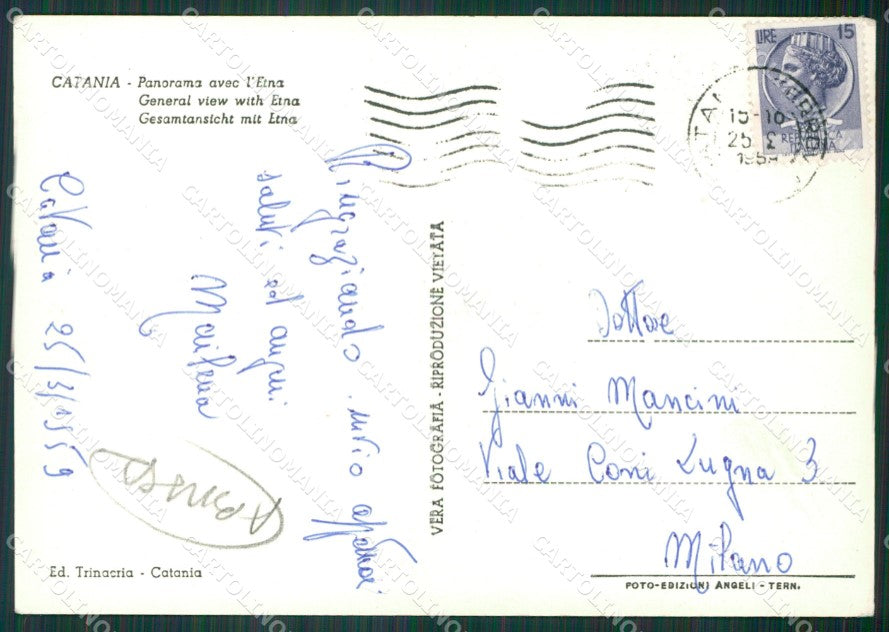 CATANIA - Panorama avec l'Etna
General view with Etna
Gesamtansicht mit Etna
LIRE 15
REPUBBLICA
ITALIANA
15-16
25
Ringraziando invio affettuosi
saluti ed auguri
Catania 25/3/1959
VERA FOTOGRAFIA - RIPRODUZIONE VIETATA
Dottore
Gianni Mancini
Viale Coni Zugna 3
Milano
Ed. Trinacria - Catania
FOTO-EDIZIONI ANGELI - TERN.
CARTOLINOMANIA